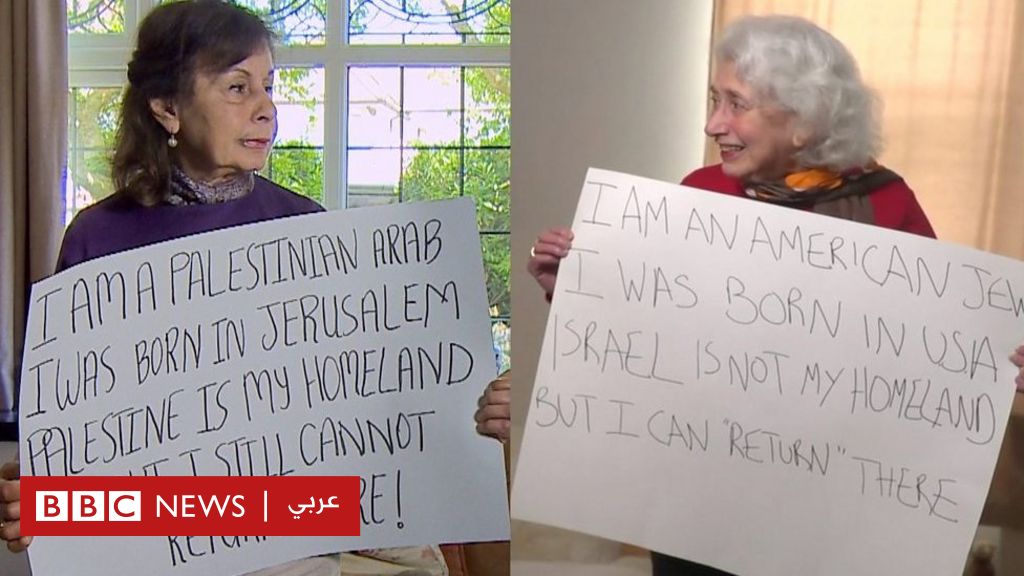 I AM A PALESTINIAN ARAB
I WAS BORN IN JERUSALEM
PALESTINE IS MY HOMELAND
I STILL CANNOT
I AM AN AMERICAN JEW
I WAS BORN IN USA
ISRAEL IS NOT MY HOMELAND
BUT I CAN "RETURN" THERE
BBC NEWS | عربي